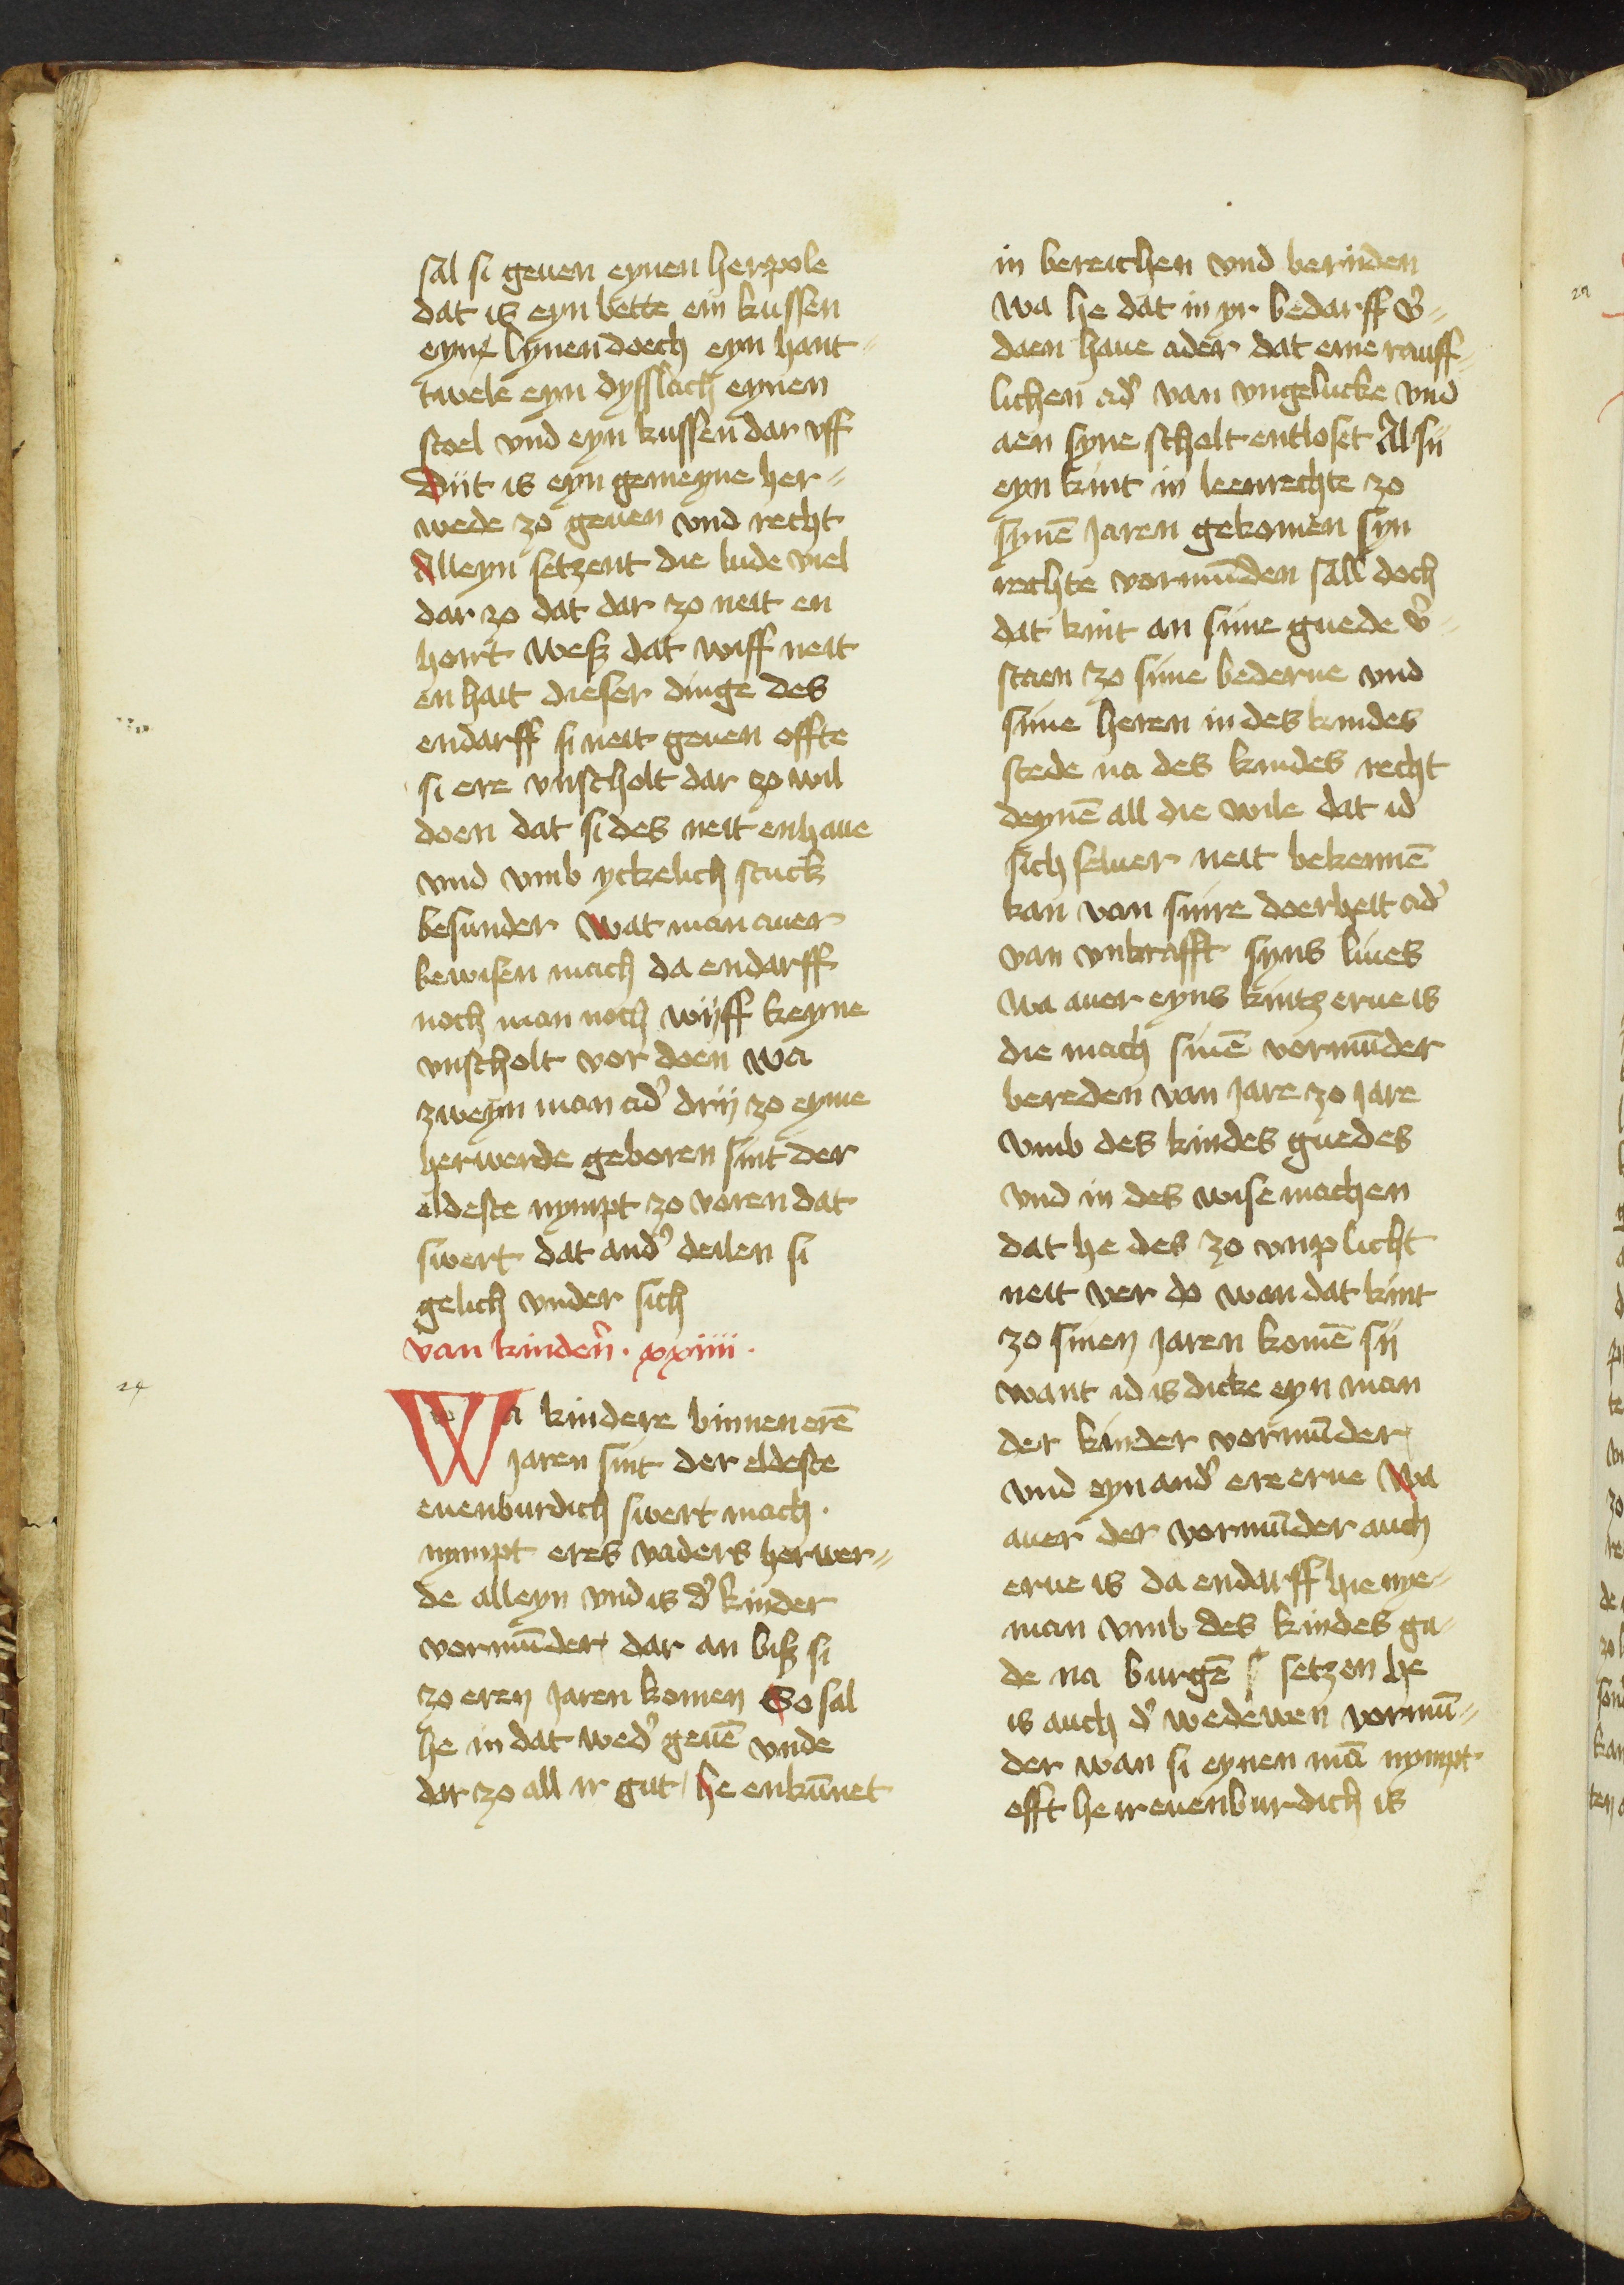 sal si geuen eynen herpole
dat is eyn bette ein kussen
eyne lynen doech eyn hant-
twele eyn dysslach eynen
stoel vnd eyn kussen dar vff
Dijt is eyn gemeyne her-
wede zo geuen vnd recht
Alleyn setzent die lude viel
dar zo dat dar zo neit en
hoirt wesz dat wiff neit
en hait dieser dinge des
endarff si neit geuen offte
si ere vnscholt dar zo wil
doen dat si des neit enhaue
vnd vmb yckelich stuck
besunder Wat man auer
bewisen mach da endarff
noch man noch wijff keyne
vnscholt vor doen wa
zweyn man ad' drij zo eyme
herwerde geboren sint der
eldeste nympt zo voren dat
swert dat and' deilen si
gelich vnder sich
van kinder̄ . xxiiii .
24
Wa kindere binnen erē
jaren sint der eldeste
euenburdich swert mach .
nympt eres vaders herwer-
de alleyn vnd is d' kinder
vormūder dar an bisz si
zo eren jaren komen So sal
he in dat wed' geuē vnde
dar zo all ir gut / he enkūnet
in bereichen vnd berinden
wa he dat in yr bedarff v'-
daen haue ader dat eme rauff-
lichen ad' van vngelucke vnd
aen syne scholt entloset Al sij
eyn kint in leenrechte zo
synē jaren gekomen syn
rechte vormūden sall doch
dat kint an sime guede v'-
staen zo sime bederue vnd
sime heren in des kindes
stede na des kindes recht
deynē all die wile dat id
sich seluer neit bekennē
kan van sinre doerheit ad'
van vnkrafft syns liues
wa auer eyns kintz erue is
die mach sinē vormūder
bereden van jare zo jare
vmb des kindes guedes
vnd in des wise machen
dat he des zo vnplicht
neit ver do wan dat kint
zo sinen jaren komē sij
want id is dicke eyn man
der kinder vormūder
vnd eyn and' ere erue Wa
auer der vormūder auch
erue is da endarff hie nye-
man vmb des kindes gu-
de na burgē setzen he
is auch d' wedewen vormū-
der wan si eynen mā nympt
offt he ir euenburdich is